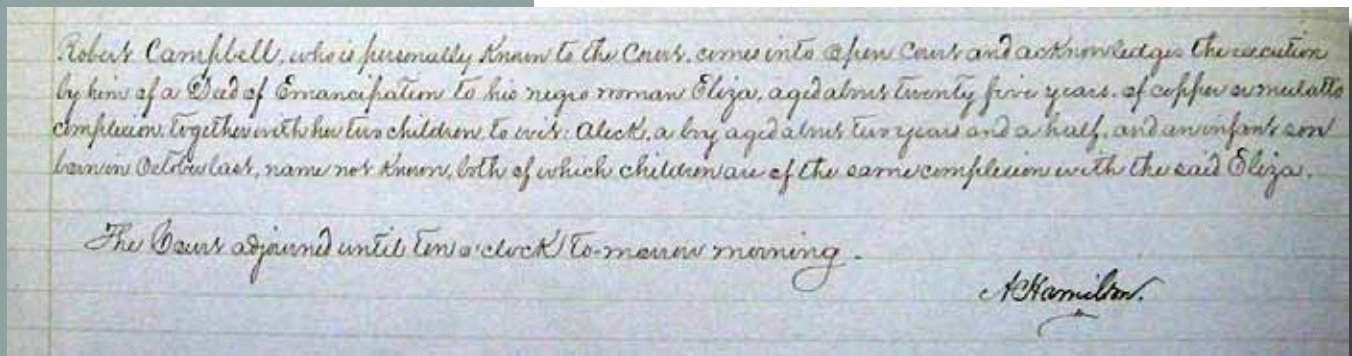 Robert Campbell, who is personally known to the Court, comes into open Court and acknowledges the execution
by him of a Deed of Emancipation to his negro woman Eliza, aged about twenty five years, of copper or mulatto
complexion, together with her two children to wit: Aleck, a boy aged about two years and a half, and an infant son
born in October last, name not known, both of which children are of the same complexion with the said Eliza.
The Court adjourned until ten o'clock to-morrow morning.
A Hamilton.